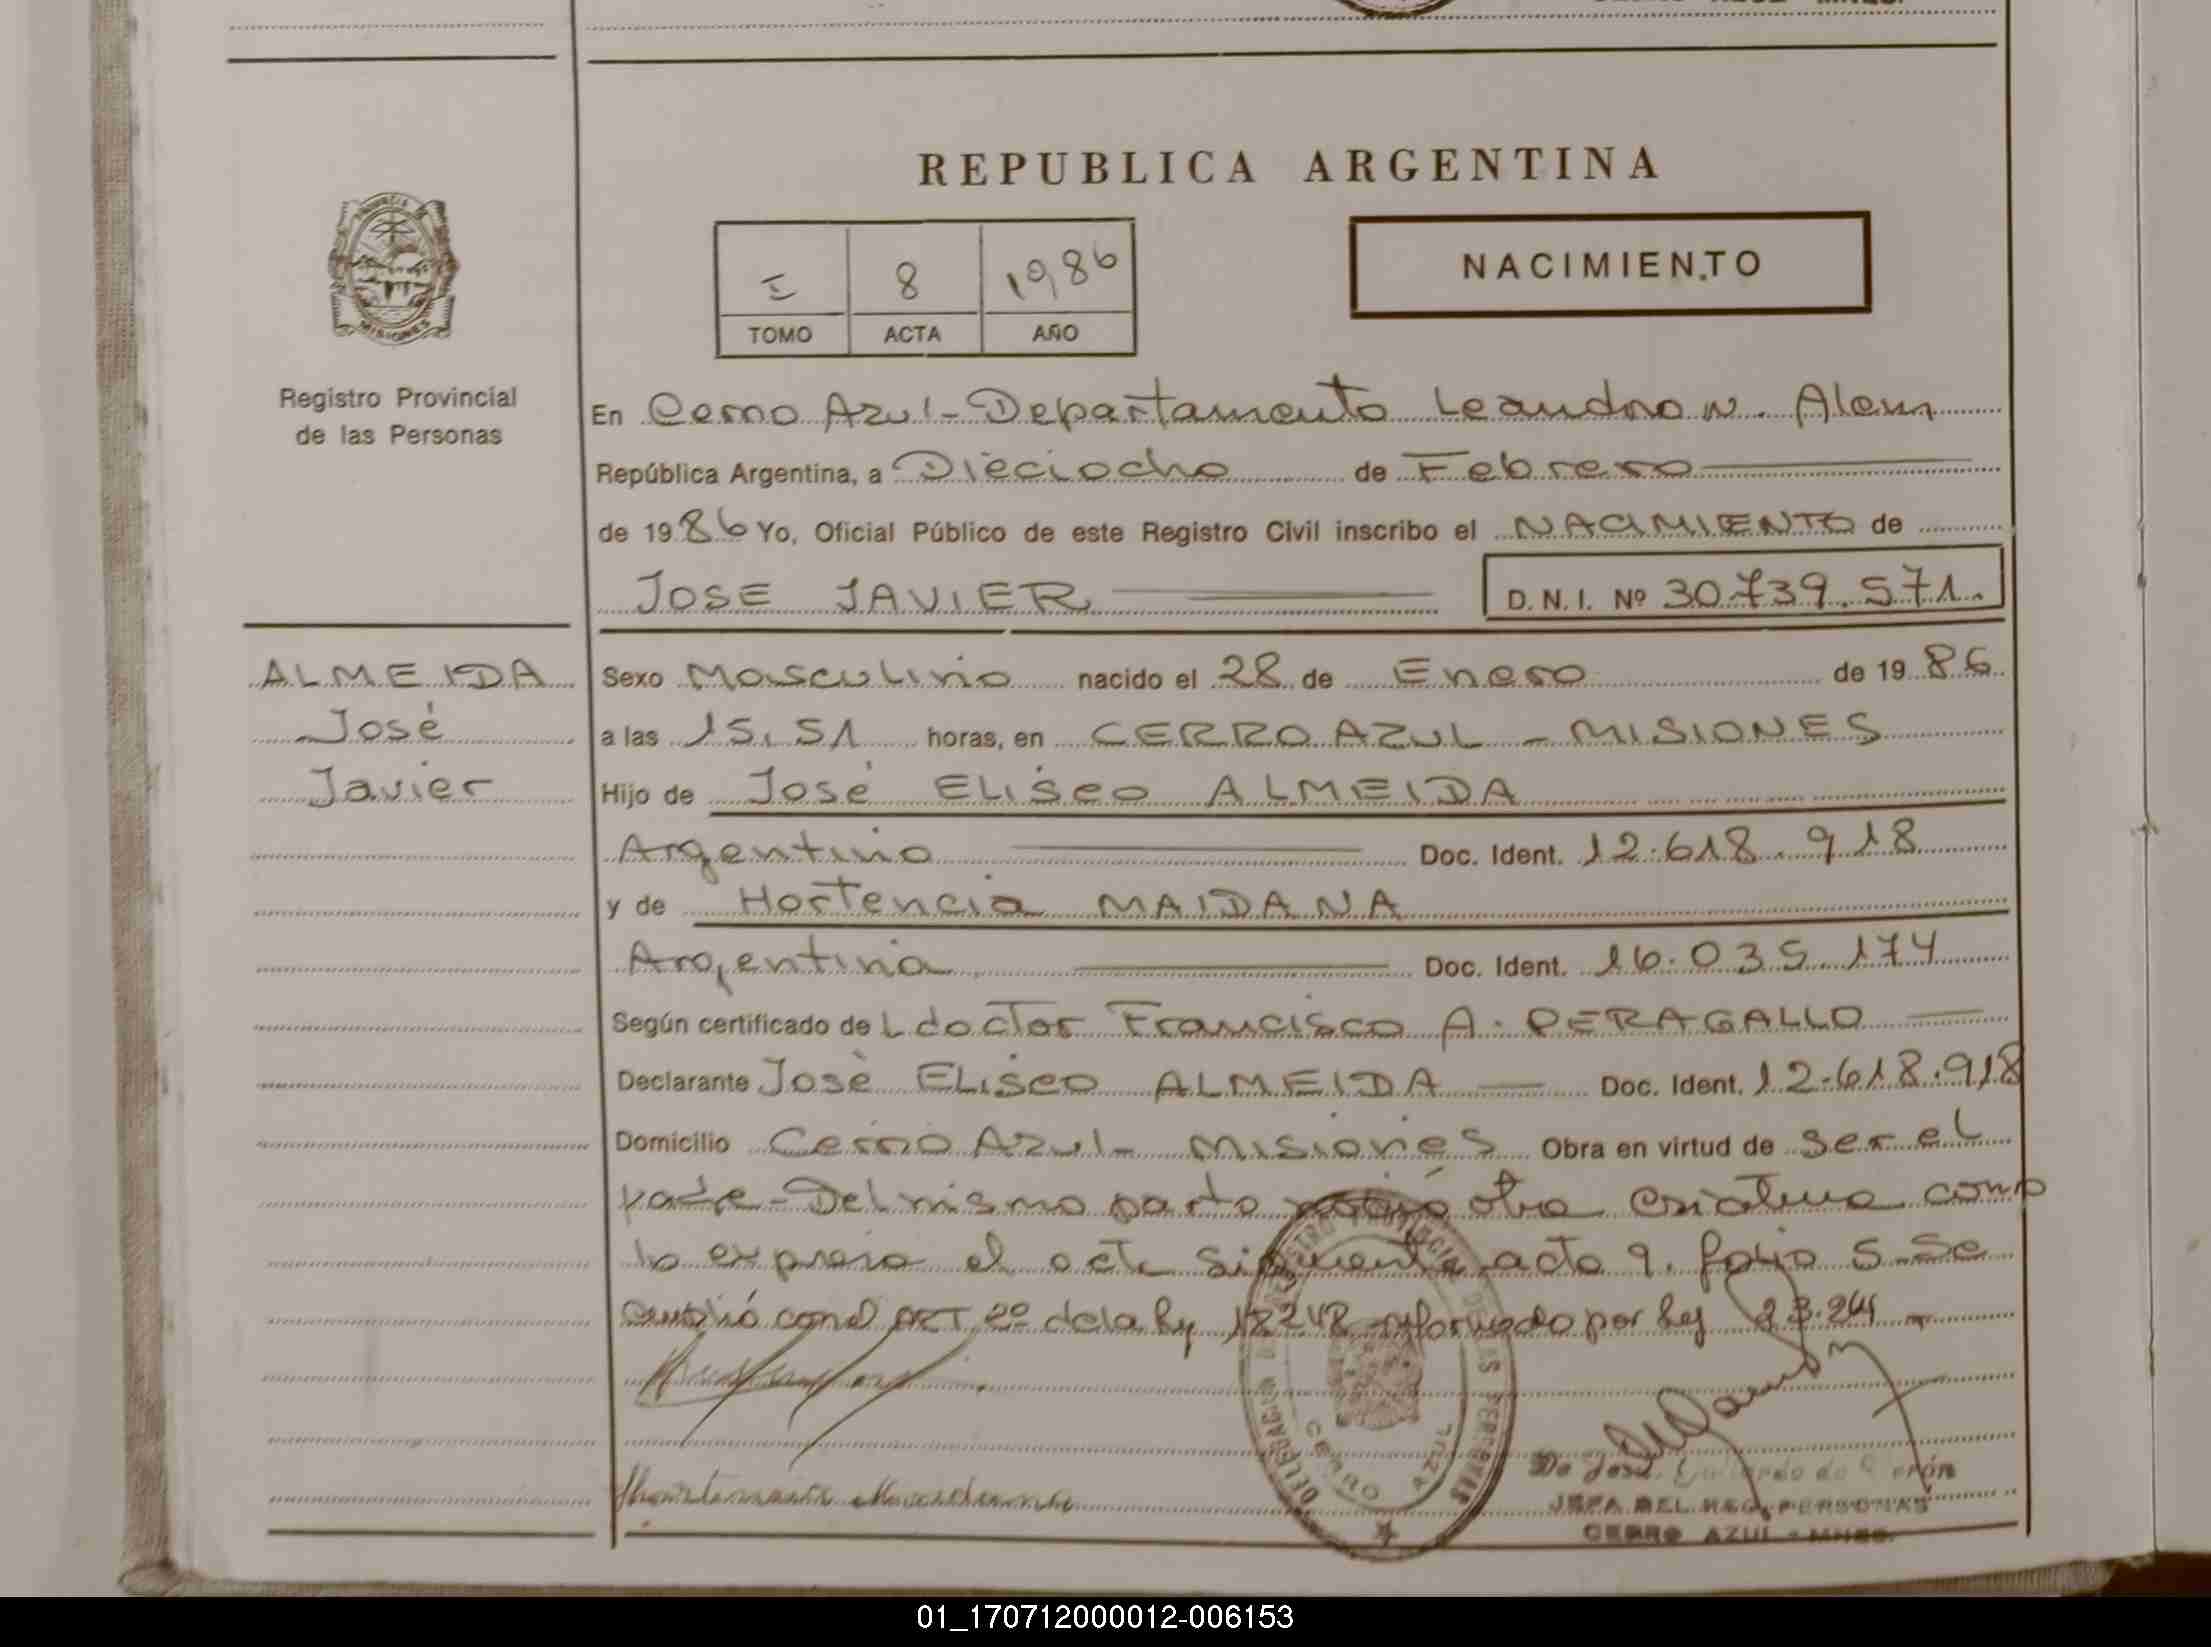 REPUBLICA ARGENTINA
I 8 1986
TOMO ACTA AÑO
NACIMIENTO
PROVINCIA DE
MISIONES
Registro Provincial
de las Personas
En Cerro Azul - Departamento Leandro N. Alem
República Argentina, a Dieciocho de Febrero
de 1986 Yo, Oficial Público de este Registro Civil inscribo el NACIMIENTO de
JOSE JAVIER
D. N. I. Nº 30.739.571.
ALMEIDA
José
Javier
Sexo Masculino nacido el 28 de Enero de 1986
a las 15,51 horas, en CERRO AZUL - MISIONES
Hijo de José ELiseo ALMEIDA
Argentino Doc. Ident. 12.618.918
y de Hortencia MAIDANA
Argentina Doc. Ident. 16.035.174
Según certificado del doctor Francisco A. PERAGALLO
Declarante José ELiseo ALMEIDA Doc. Ident. 12.618.918
Domicilio Cerro Azul - Misiones Obra en virtud de ser el
padre - Del mismo parto nació otra criatura como
lo expresa el acta siguiente acta 9. folio 5 - Se
cumplió con el ART 2º de la ley 18248 reformado por ley
DELEGACION REGISTRO PROVINCIAL DE LAS PERSONAS
CERRO AZUL
JEFA DEL REG. PERSONAS
CERRO AZUL - MNES.
01_170712000012-006153